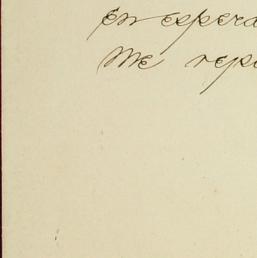 En espera
me repi